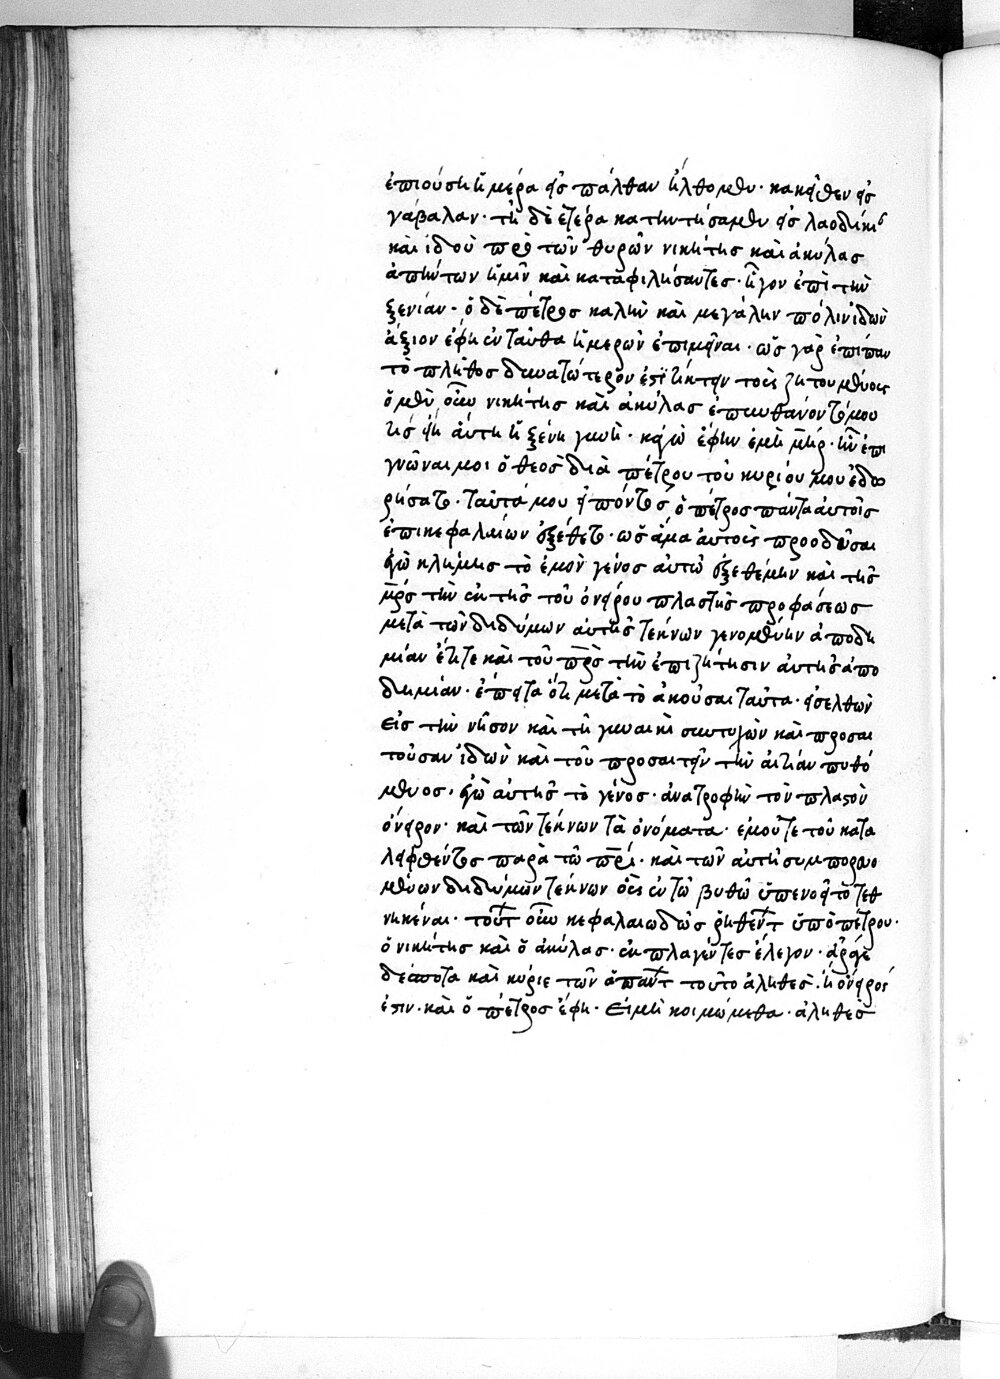 ἐπιούση ἡμέρα εἰς πάλθαν ἤλθομεν· κακεῖθεν εἰς
γάβαλαν· τῆ δὲ ἑτέρα κατηντήσαμεν εἰς λαοδίκει
καὶ ἰδοὺ πρὸ τῶν θυρῶν νικήτης καὶ ἀκύλας
ἀπήντων ἡμῖν καὶ καταφιλήσαντες· ἦγον ἐπὶ τὴν
ξενίαν· ὁ δὲ πέτρος καλὴν καὶ μεγάλην πόλιν ἰδὼν
ἄξιον ἔφη ἐνταῦθα ἡμερῶν ἐπιμεῖναι· ὡς γὰρ ἐπίπαν
τὸ πλῆθος δυνατώτερον ἐστὶ τίκτειν τοὺς ζητουμένους
ὁ μὲν οὖν νικήτης καὶ ἀκύλας ἐπυνθάνοντό μου
τίς εἴη ἁύτη ἡ ξένη γυνή· κἀγὼ ἔφην ἐμὴ μηρ· ἣν ἐπι
γνῶναι μοι ὁ θεὸς διὰ πέτρου τοῦ κυρίου μου ἐδω
ρήσατο· ταῦτά μου εἰπόντος, ὁ πέτρος πάντα αὐτοῖς
ἐπικεφαλαίων ἐξέθετο· ὡς ἅμα αὐτοῖς προοδεῦσαι
ἐγὼ κλήμης τὸ ἐμὸν γένος αὐτῶ ἐξεθέμην καὶ τῆς
μρς τὴν ἐκ τῆς τοῦ ὀνείρου πλαστῆς προφάσεως
μετὰ τῶν διδύμων αὐτῆς τέκνων γενομένην ἀποδη
μίαν ἔτι τε καὶ τοῦ πρς τὴν ἐπιζήτησιν αὐτῆς ἀπο
δημίαν· ἔπειτα ὅτι μετὰ τὸ ἀκοῦσαι ταῦτα· εἰσελθὼν
εἰς τὴν νῆσον καὶ τῆ γυναικὶ συντυχὼν καὶ προσαι
τοῦσαν ἰδὼν καὶ τοῦ προσαιτεῖν τὴν αἰτίαν πυθό
μενος, ἔγνω αὐτῆς τὸ γένος· ἀνατροφὴν τὸν πλαστὸν
ὄνειρον· καὶ τῶν τέκνων τὰ ὀνόματα· ἐμοῦ τε τοῦ κατα
λειφθέντος παρὰ τῶ πρί· καὶ τῶν αὐτῆ συμπορευο
μένων διδύμων τέκνων οὓς ἐν τῶ βυθῶ ὑπενοεῖτο τεθ
νηκέναι· τούτ οὖν κεφαλαιωδῶς ῥηθέντ ὑπὸ πέτρου·
ὁ νικήτης καὶ ὁ ἀκύλας· ἐκπλαγέντες ἔλεγον· ἆρά γε
δέσποτα καὶ κύριε τῶν ἁπάντ τοῦτο ἀληθὲς· ἢ ὄνειρός
ἐστιν· καὶ ὁ πέτρος ἔφη· εἰ μὴ κοιμώμεθα· ἀληθὲς